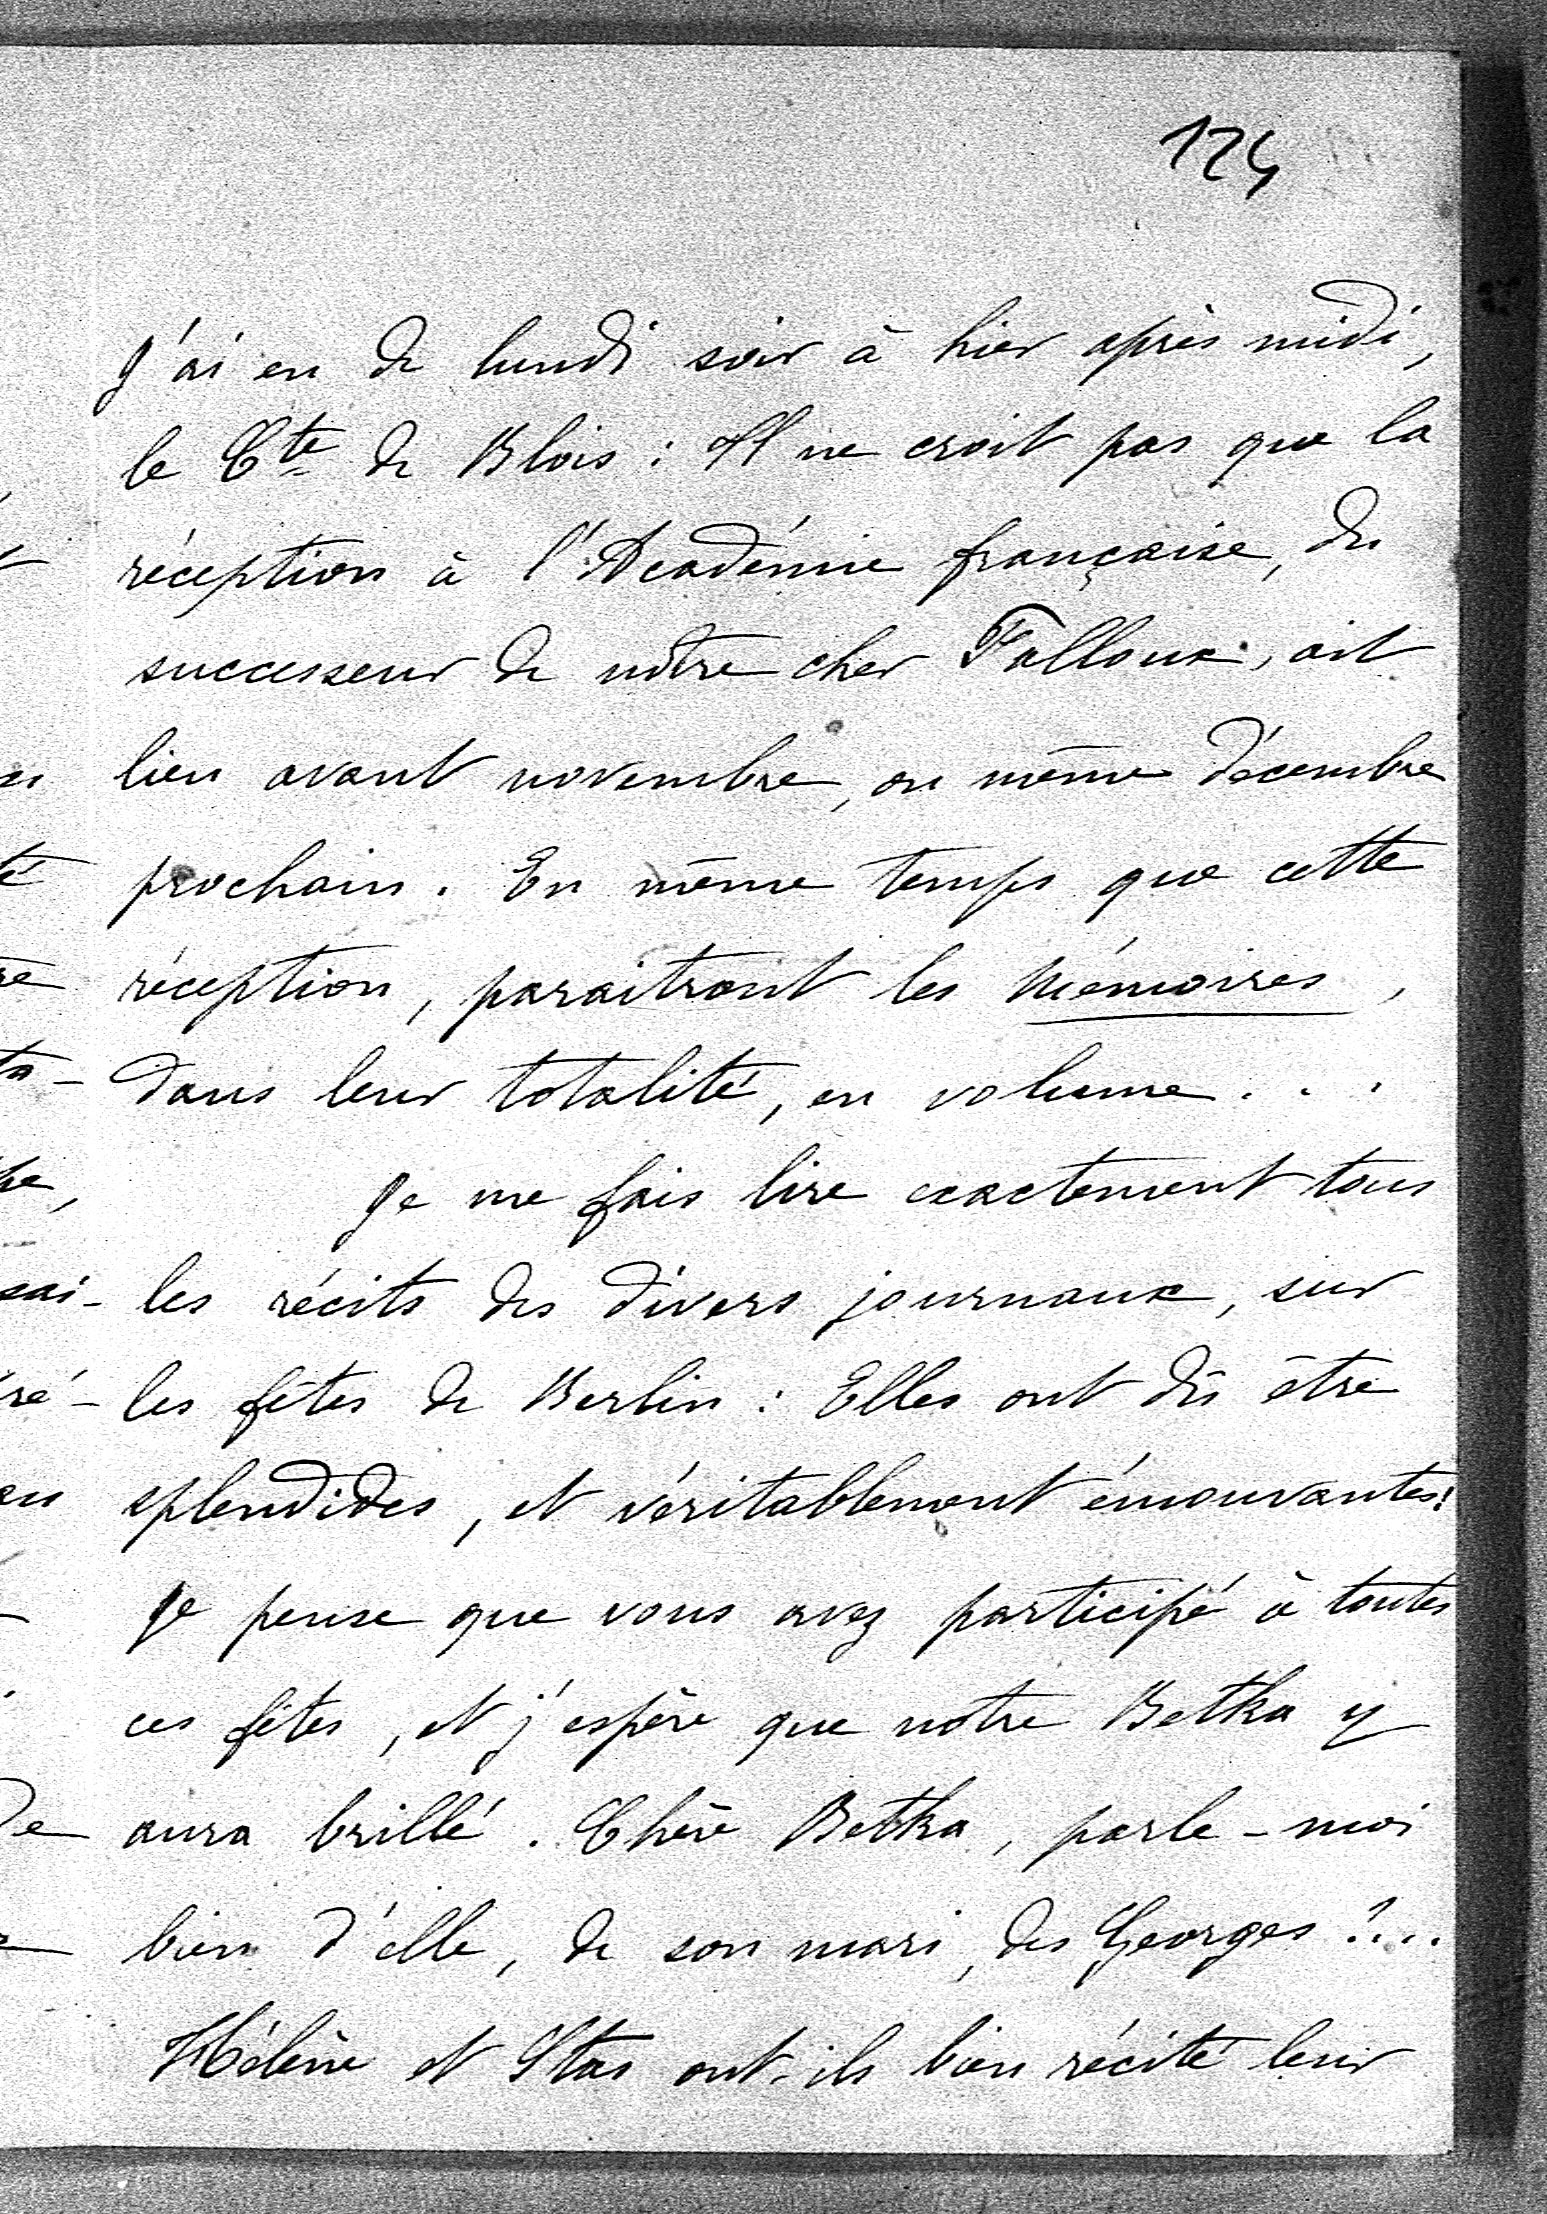 124
J'ai eu de lundi soir à hier après midi,
le Cte de Blois : Il ne croit pas que la
réception à l'Académie française, du
successeur de nôtre cher Falloux, ait
lieu avant novembre, ou même décembre
prochain. En même temps que cette
réception, paraitront les Mémoires,
dans leur totalité, en volume...
Je me fais lire exactement tous
les récits des divers journaux, sur
les fêtes de Berlin : Elles ont dû être
splendides, et véritablement émouvantes!
Je pense que vous avez participé à toutes
ces fêtes, et j'espère que notre Betka y
aura brillé. Chère Betka, parle-moi
bien d'elle, de son mari, des Georges ?...
Hélène et Stas ont-ils bien récité leur